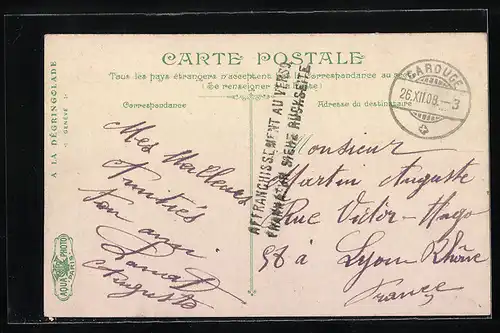 CARTE POSTALE
Tous les pays étrangers n'acceptent pas la Correspondance au recto
(Se renseigner à la Poste)
Correspondance
Adresse du destinataire
A LA DÉGRINGOLADE
GENÈVE
CAROUGE
26.XII.09.-3
AFFRANCHISSEMENT AU VERSO
FRANKATUR SIEHE RÜCKSEITE
Mes
Amitiés
ton ami
Auguste
Monsieur
Martin Auguste
Rue Victor-Hugo
58 à Lyon Rhône
France
AQUA PHOTO
PARIS